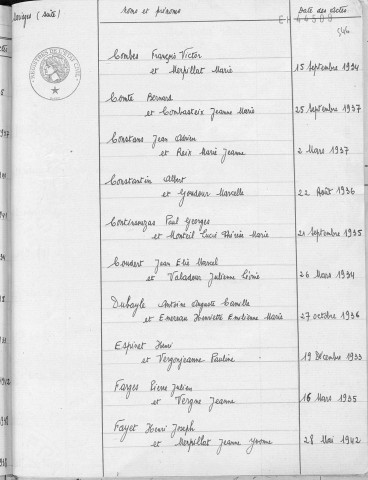 (suite)
Noms et prénoms
Date des Actes
Combes François Victor
et Merpillat Marie
15 Septembre 1934
Comte Bernard
et Combasteix Jeanne Marie
25 Septembre 1937
Constans Jean Adrien
et Reix Marie Jeanne
2 Mars 1937
Constantin Albert
et Goudour Marcelle
22 Août 1936
Paul Georges
et Monteil Lucie Thérèse Marie
21 Septembre 1935
Coudert Jean Elie Marcel
et Valadour Julienne Léonie
26 Mars 1934
Dubayle Antoine Auguste Camille
et Henriette Emilienne Marie
27 octobre 1936
Espinet Henri
et Pauline
19 Décembre 1933
Farges Pierre Julien
et Vergne Jeanne
16 Mars 1935
Fayet Henri Joseph
et Merpillat Jeanne Yvonne
28 Mai 1942